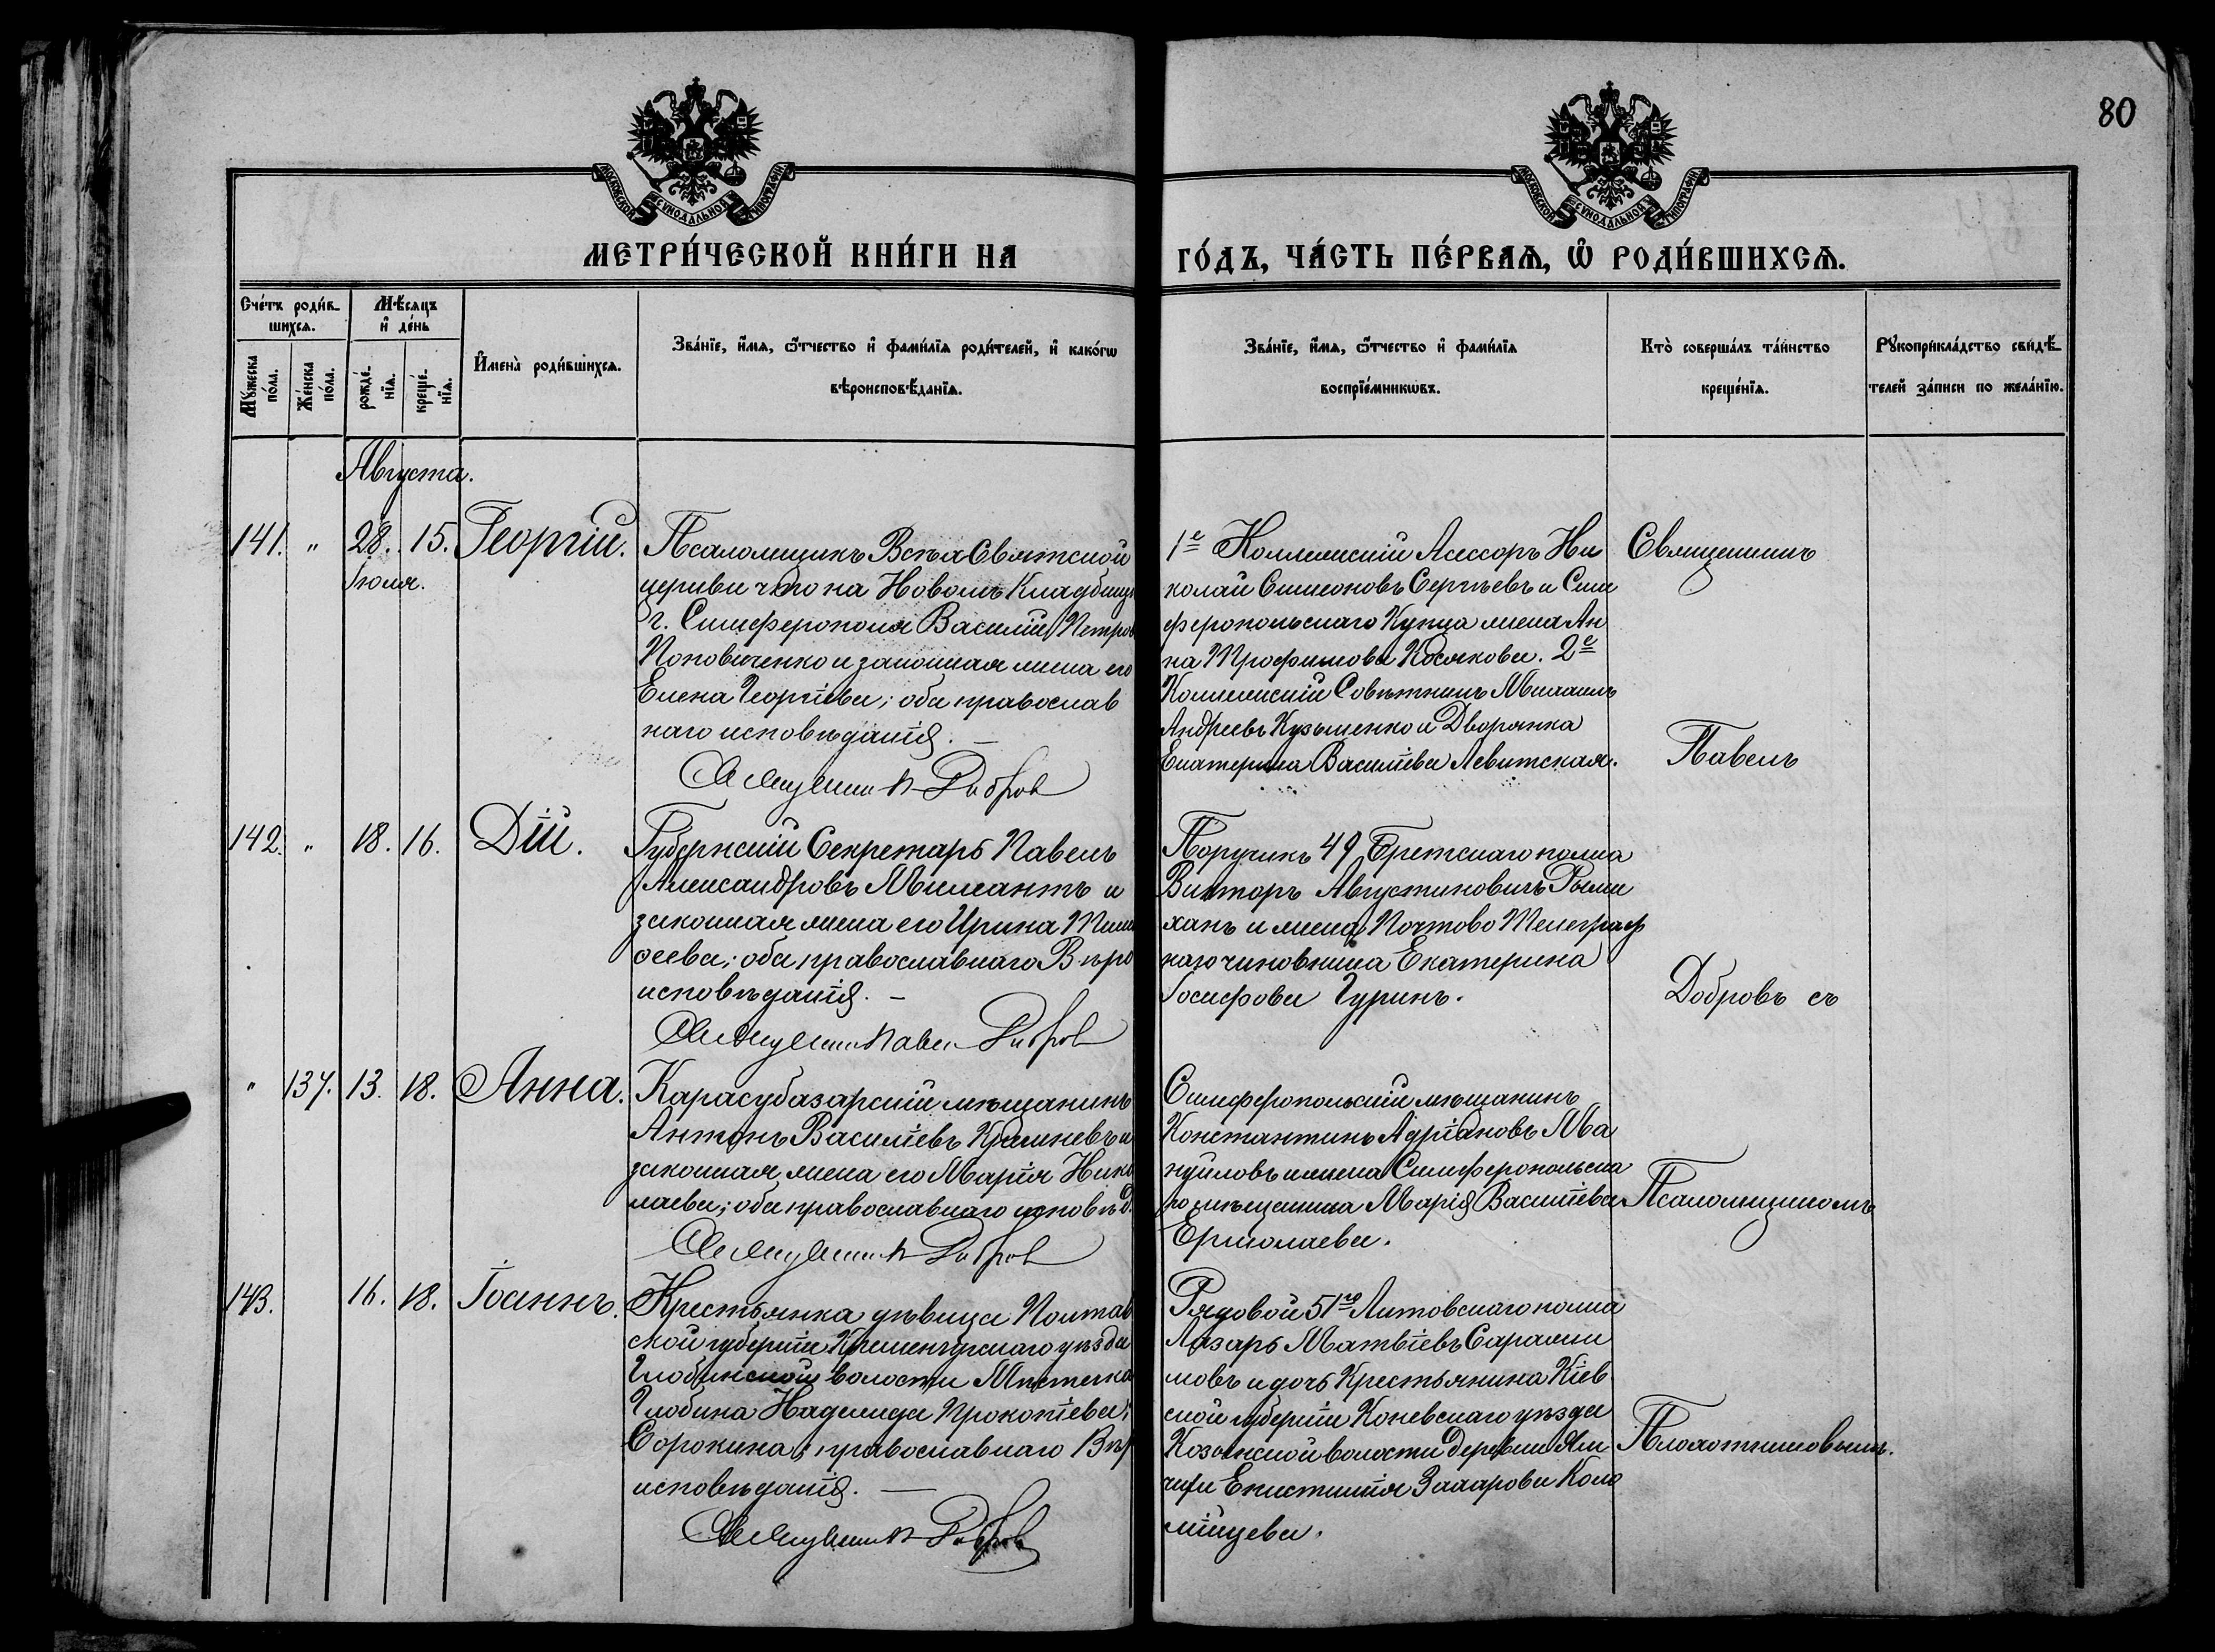 80
МОСКОВСКОЙ СУНОДАЛЬНОЙ ТИПОГРАФІИ
МОСКОВСКОЙ СУНОДАЛЬНОЙ ТИПОГРАФІИ
МЕТРИ́ЧЕСКОЙ КНИ́ГИ НА
ГО́ДЪ, ЧА́СТЬ ПЕ́РВАѦ, Ѡ РОДИ́ВШИХСѦ.
Счетъ родив-
шихсѧ.
Мужеска
пола.
Женска
пола.
Мѣсѧцъ
и день
рожде-
нїѧ.
креще-
нїѧ.
Имена родившихсѧ.
Званїе, имѧ, ѻтчество и фамилїѧ родителей, и какогѡ
вѣроисповѣданїѧ.
Званїе, имѧ, ѻтчество и фамилїѧ
воспрїемникѡвъ.
Кто совершалъ таинство
крещенїѧ.
Рукоприкладство свидѣ-
телей записи по желанїю.
Августа.
141. " 28. 15. Георгій.
Іюля.
Псаломщикъ Всѣхсвятской
церкви что на Новомъ Кладбищѣ
г. Симферополя Василій Петровъ
Поповиченко и законная жена его
Елена Георгіева; оба православ
наго исповѣданія. —
Священникъ П. Добровъ
1е Коллежскій Асессоръ Ни
колай Симеоновъ Сергѣевъ и Сим
феропольскаго Купца жена Ан
на Трофимова Косякова. 2е
Коллежскій Совѣтникъ Михаилъ
Андреевъ Кузьменко и Дворянка
Екатерина Василіева Левитская.
Священникъ
Павелъ
142. " 18. 16. Дій.
Губернскій Секретарь Павелъ
Александровъ и
законная жена его Ирина Тимо
ѳеева; оба православнаго Вѣро
исповѣданія. —
Священникъ Павелъ Добровъ
Поручикъ 49 Бретскаго полка
Викторъ Августиновичъ
ханъ и жена Почтово Телеграф
наго чиновника Екатерина
Іосифова Гуринъ.
Добровъ съ
" 137. 13. 18. Анна.
Карасубазарскій мѣщанинъ
Антонъ Василіевъ и
законная жена его Марія Нико
лаева; оба православнаго исповѣд.
Священникъ П. Добровъ
Симферопольскій мѣщанинъ
Константинъ Адріановъ Ма
нуйловъ и жена Симферопольска
го мѣщанина Марія Василіева
Ермолаева.
Псаломщикомъ
143. 16. 18. Іоаннъ.
Крестьянка дѣвица Полтав
ской губерніи Кременчугскаго уѣзда
Глобинской волости Мѣстечка
Глобина Надежда Прокопіева
Сорокина; православнаго Вѣр
исповѣданія. —
Священникъ П. Добровъ
Рядовой 51го Литовскаго полка
Лазарь Матвіевъ
мовъ и дочь Крестьянина Кіев
ской губерніи Каневскаго уѣзда
Козинской волости деревни
Захарова Коло
мійцева.
Плохотниковымъ.